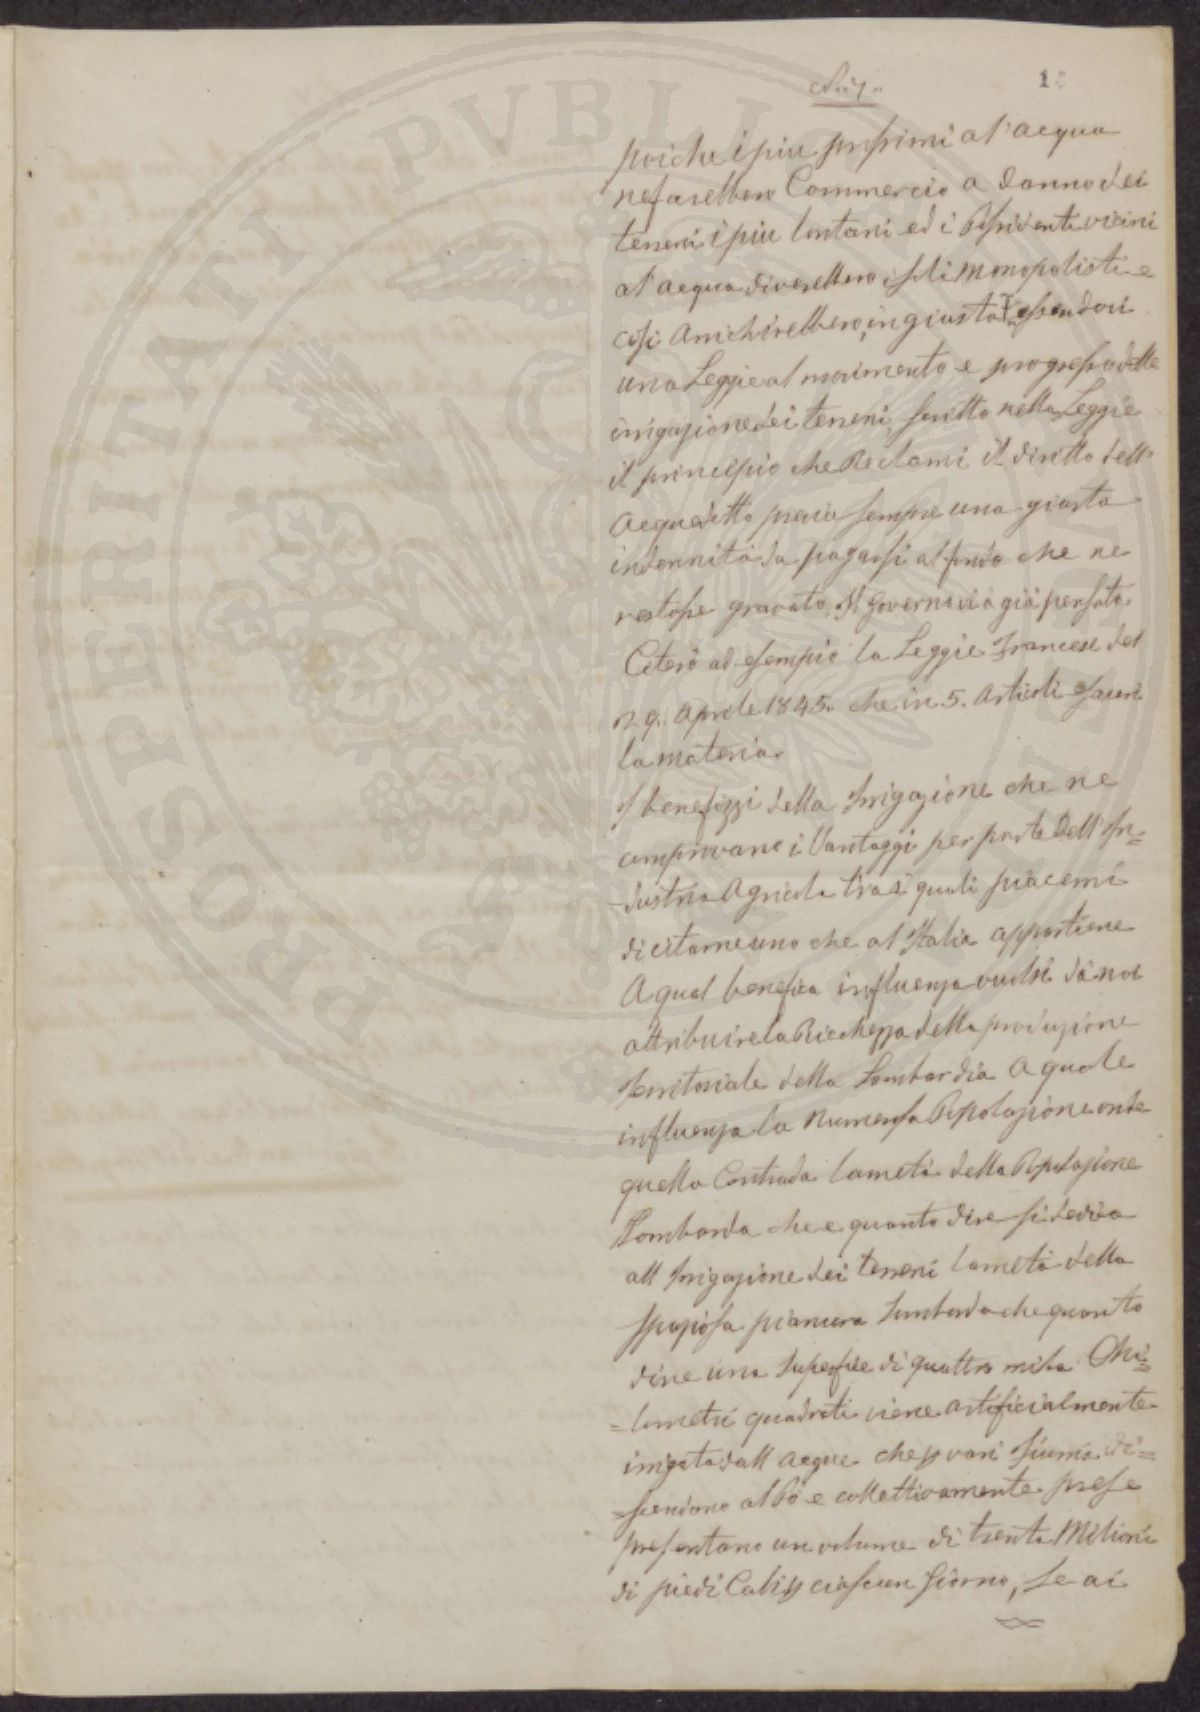 15
poiche i piu prossimi al' acqua
ne farebbero Commercio a danno dei
terreni i piu lontani ed i Possidenti vicini
al' acqua diverebbero i soli Monopolisti e
cosi Arrichirebbero, ingiusta essendovi
una Leggie al movimento e progresso della
irrigazione dei terreni, scritto nella Leggie
il principio che Reclami il diritto dell'
Acquedotto previa sempre una giusta
indennità da pagarsi al fondo che ne
restasse gravato, Il Governo vi à già pensato.
Citerò ad esempio la Leggie Francese del
29. Aprile 1845. che in 5. Articoli esaurì
la materia.
I benefizzi della Irrigazione che ne
comprovano i Vantaggi per parte dell' In=
dustria Agricola tra i quali piacemi
di citarne uno che al' Italia appartiene
A qual benefica influenza vuolsi da noi
attribuire la Ricchezza della produzione
territoriale della Lombardia A quale
influenza la numerosa Popolazione onde
quella Contrada la metà della Popolazione
Lombarda che e quanto dire si dedica
all Irrigazione dei terreni la metà della
spaziosa pianura Lombarda che quanto
dire una superfice di quattro mila Chi=
=lometri quadrati viene artificialmente
irrigata dall acque che vari fiumi di=
=scendono al Pò e collettivamente prese
presentano un volume di trenta Milioni
di piedi Cubi ciascun Giorno, Se ai